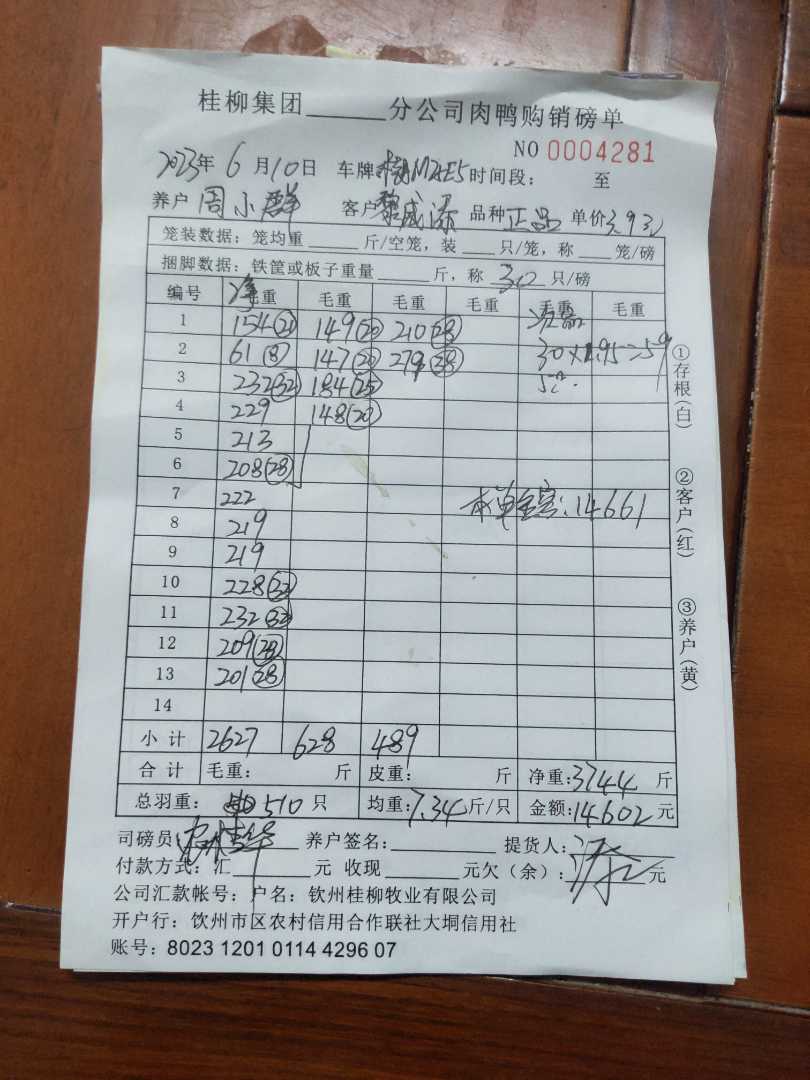 桂柳集团______分公司肉鸭购销磅单
NO 0004281
2023年 6 月 10 日 车牌 M2E5 时间段: 至
养户 周小群 客户 黎威添 品种 正品 单价 3.9
笼装数据: 笼均重 ______ 斤/空笼, 装 ____ 只/笼, 称 ____ 笼/磅
捆脚数据: 铁筐或板子重量 ______ 斤, 称 30 只/磅
编号 净毛重 毛重 毛重 毛重 毛重 毛重
1 154(21) 149(20) 210(28)
2 61(8) 147(20) 279(38) 30×1.95=59
3 232(32) 184(25)
4 229 148(20)
5 213
6 208(28)
7 222 本单全害:14661
8 219
9 219
10 228(32)
11 232(32)
12 209(28)
13 201(28)
14
小计 2627 628 489
合计 毛重: 斤 皮重: 斤 净重:3744 斤
总羽重: 510 只 均重:7.34 斤/只 金额:14602 元
司磅员: 养户签名:________ 提货人:
付款方式: 汇______元 收现______元欠(余):______元
公司汇款帐号: 户名: 钦州桂柳牧业有限公司
开户行: 饮州市区农村信用合作联社大垌信用社
账号: 8023 1201 0114 4296 07
①存根(白)
②客户(红)
③养户(黄)